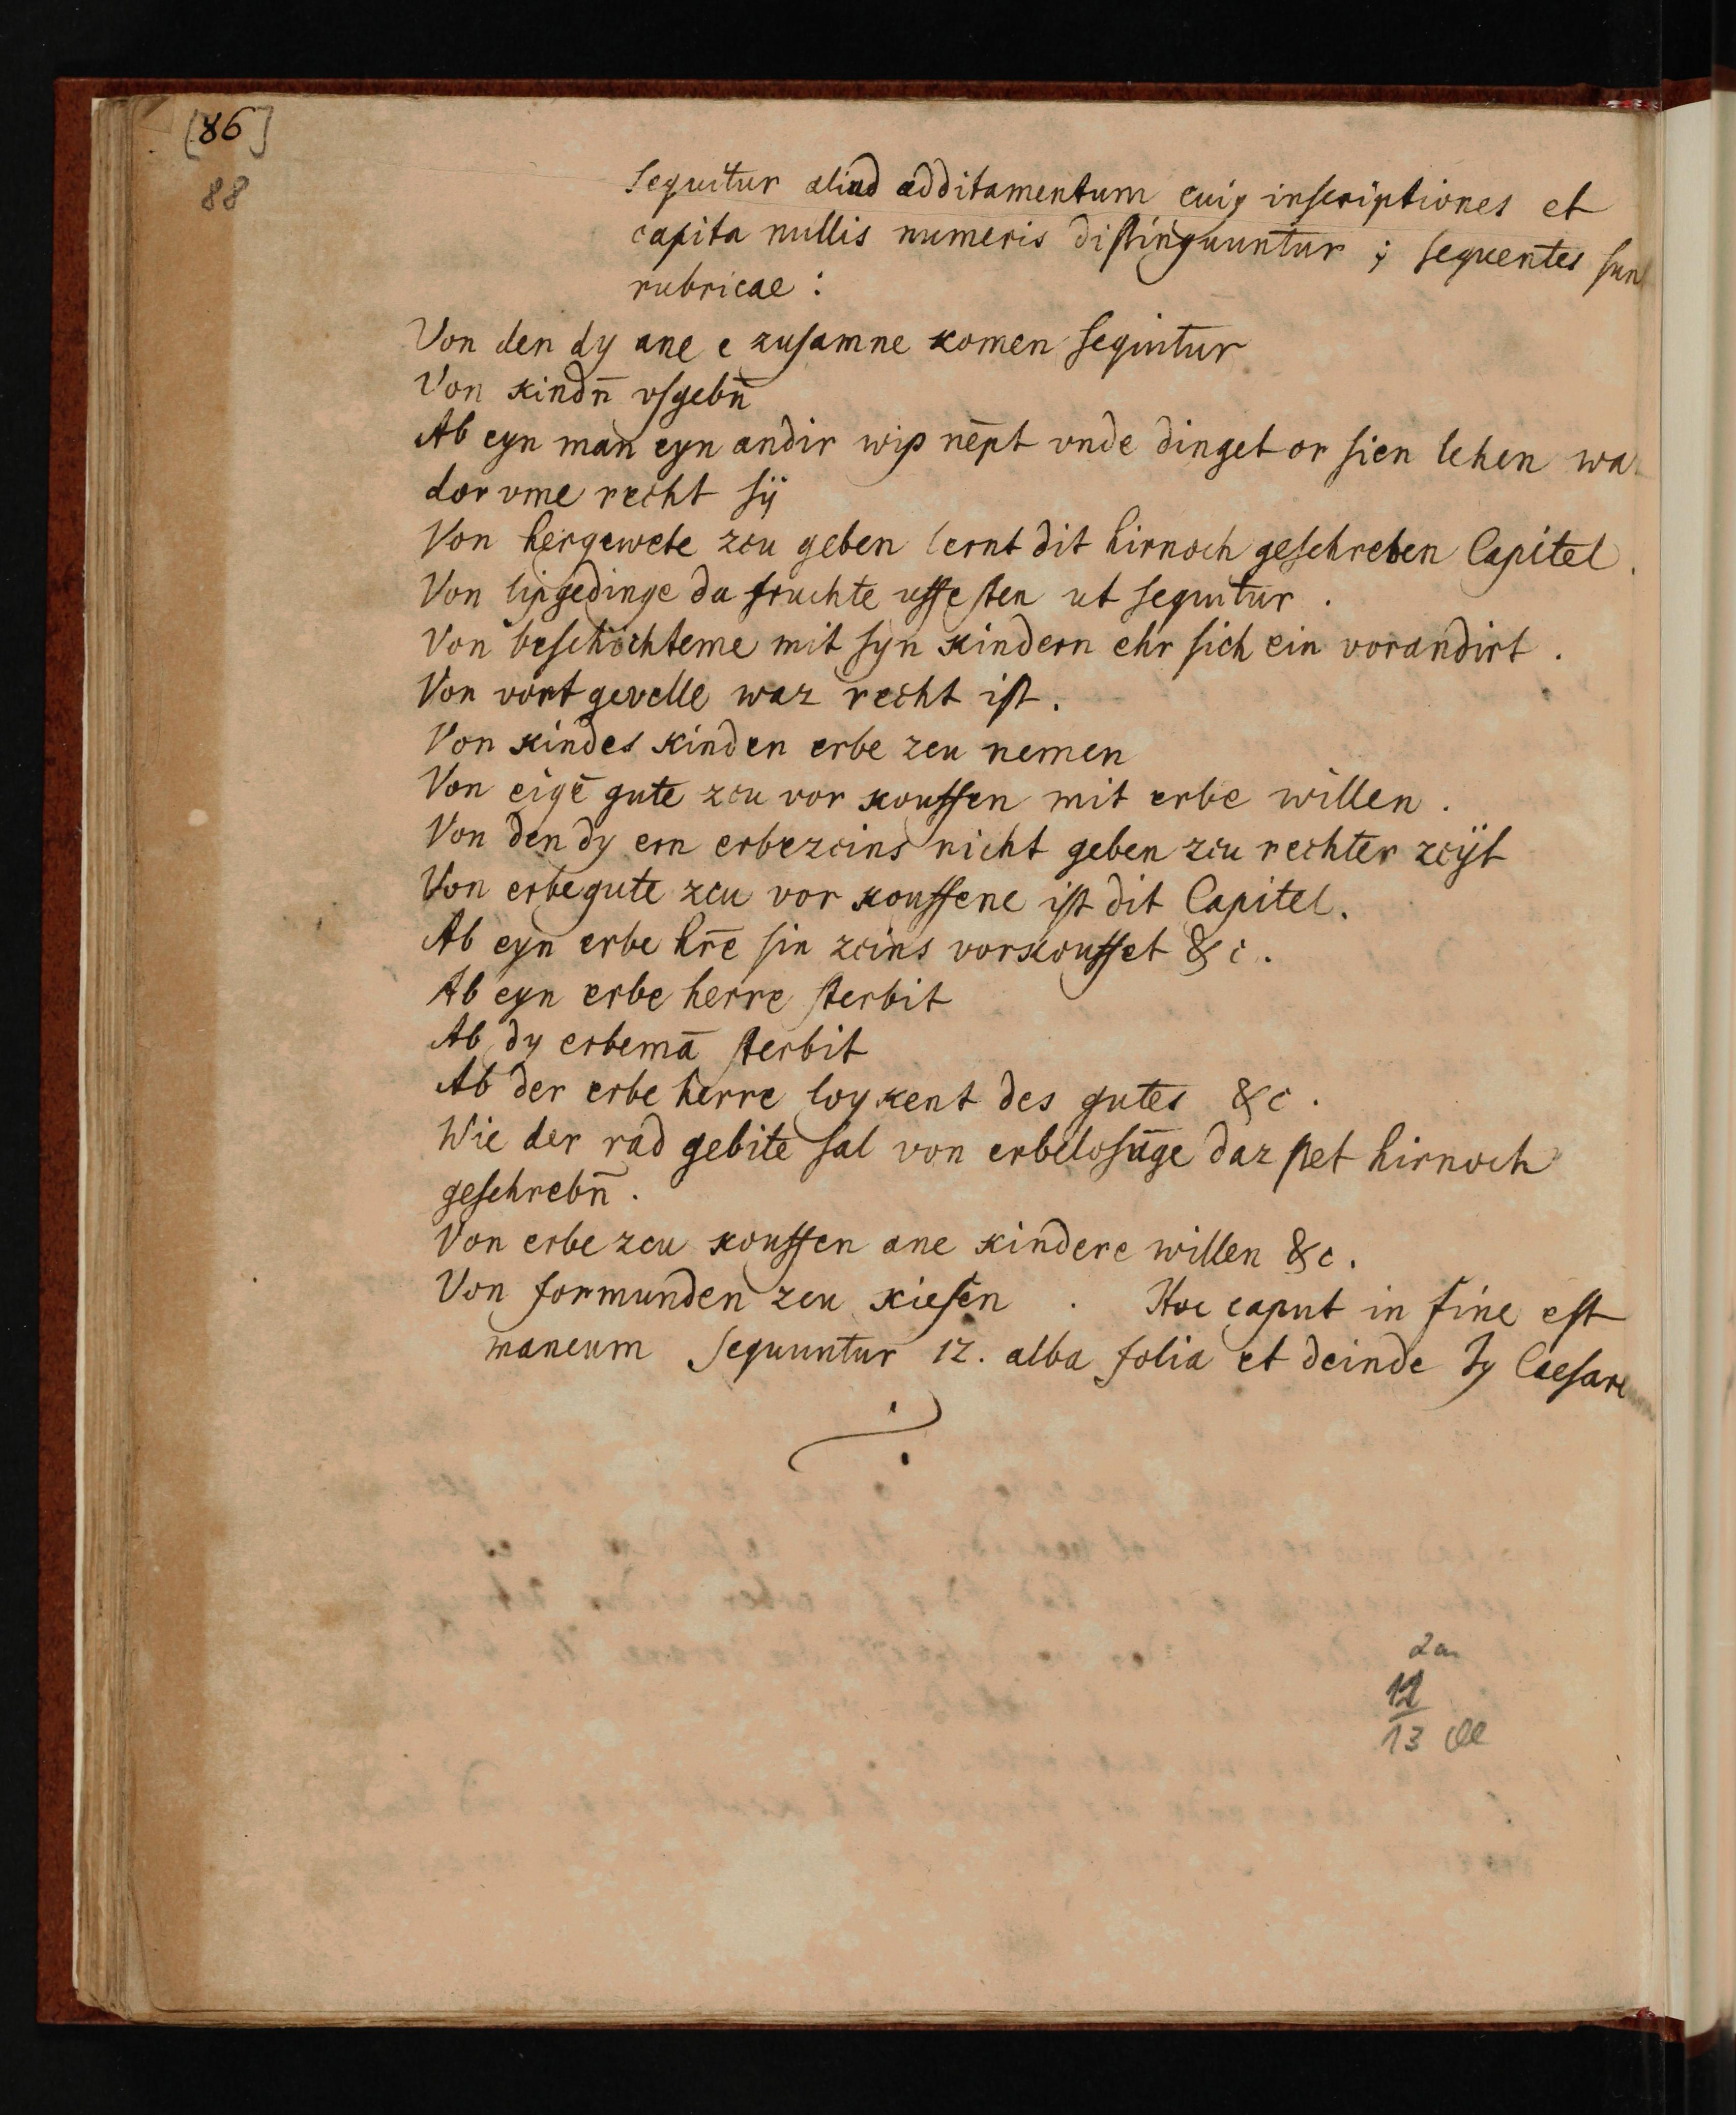 [86]
88
Sequitur aliud additamentum cuiꝫ inscriptiones et
capita nullis numeris distinguuntur ; sequentes sunt
rubricae :
Von den dy ane e zusamne komen sequitur
Von kindn̄ vsgebn̄
Ab eyn man eyn andir wip nēpt vnde dinget or sien lehen waz
dor vme recht sÿ
Von hergewete zcu geben lernt dit hirnoch geschreben Capitel.
Von lipgedinge da fruchte uffe sten ut sequitur .
Von beschochteme mit syn kindern ehr sich ein vorandirt .
Von vort gevelle waz recht ist .
Von kindes kinden erbe zcu nemen
Von eigē gute zcu vor kouffen mit erbe willen .
Von den dy ern erbezcins nicht geben zcu rechter zcÿt
Von erbegute zcu vor kouffene ist dit Capitel.
Ab eyn erbe hr̄e sin zcins vorkouffet &c .
Ab eyn erbe herre sterbit
Ab dy erbemā sterbit
Ab der erbe herre loykent des gutes &c .
Wie der rad gebite sal von erbelosūge daz stet hirnoch
geschrebn̄ .
Von erbe zcu kouffen ane kindere willen &c .
Von formunden zcu kiesen . Hoc caput in fine est
mancum Sequuntur 12. alba folia et deinde Jy Caesare
12
13